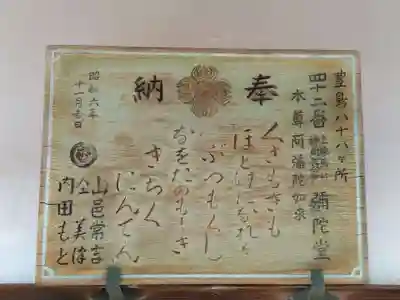 豊島八十八ヶ所
四十二番 彌陀堂
本尊阿彌陀如来
奉納
くさも木も
ほとけになれる
ぶつもくし
なをたのもしき
きちく
にんてん
昭和六年
十一月吉日
山邑常吉
仝 美津
内田もと